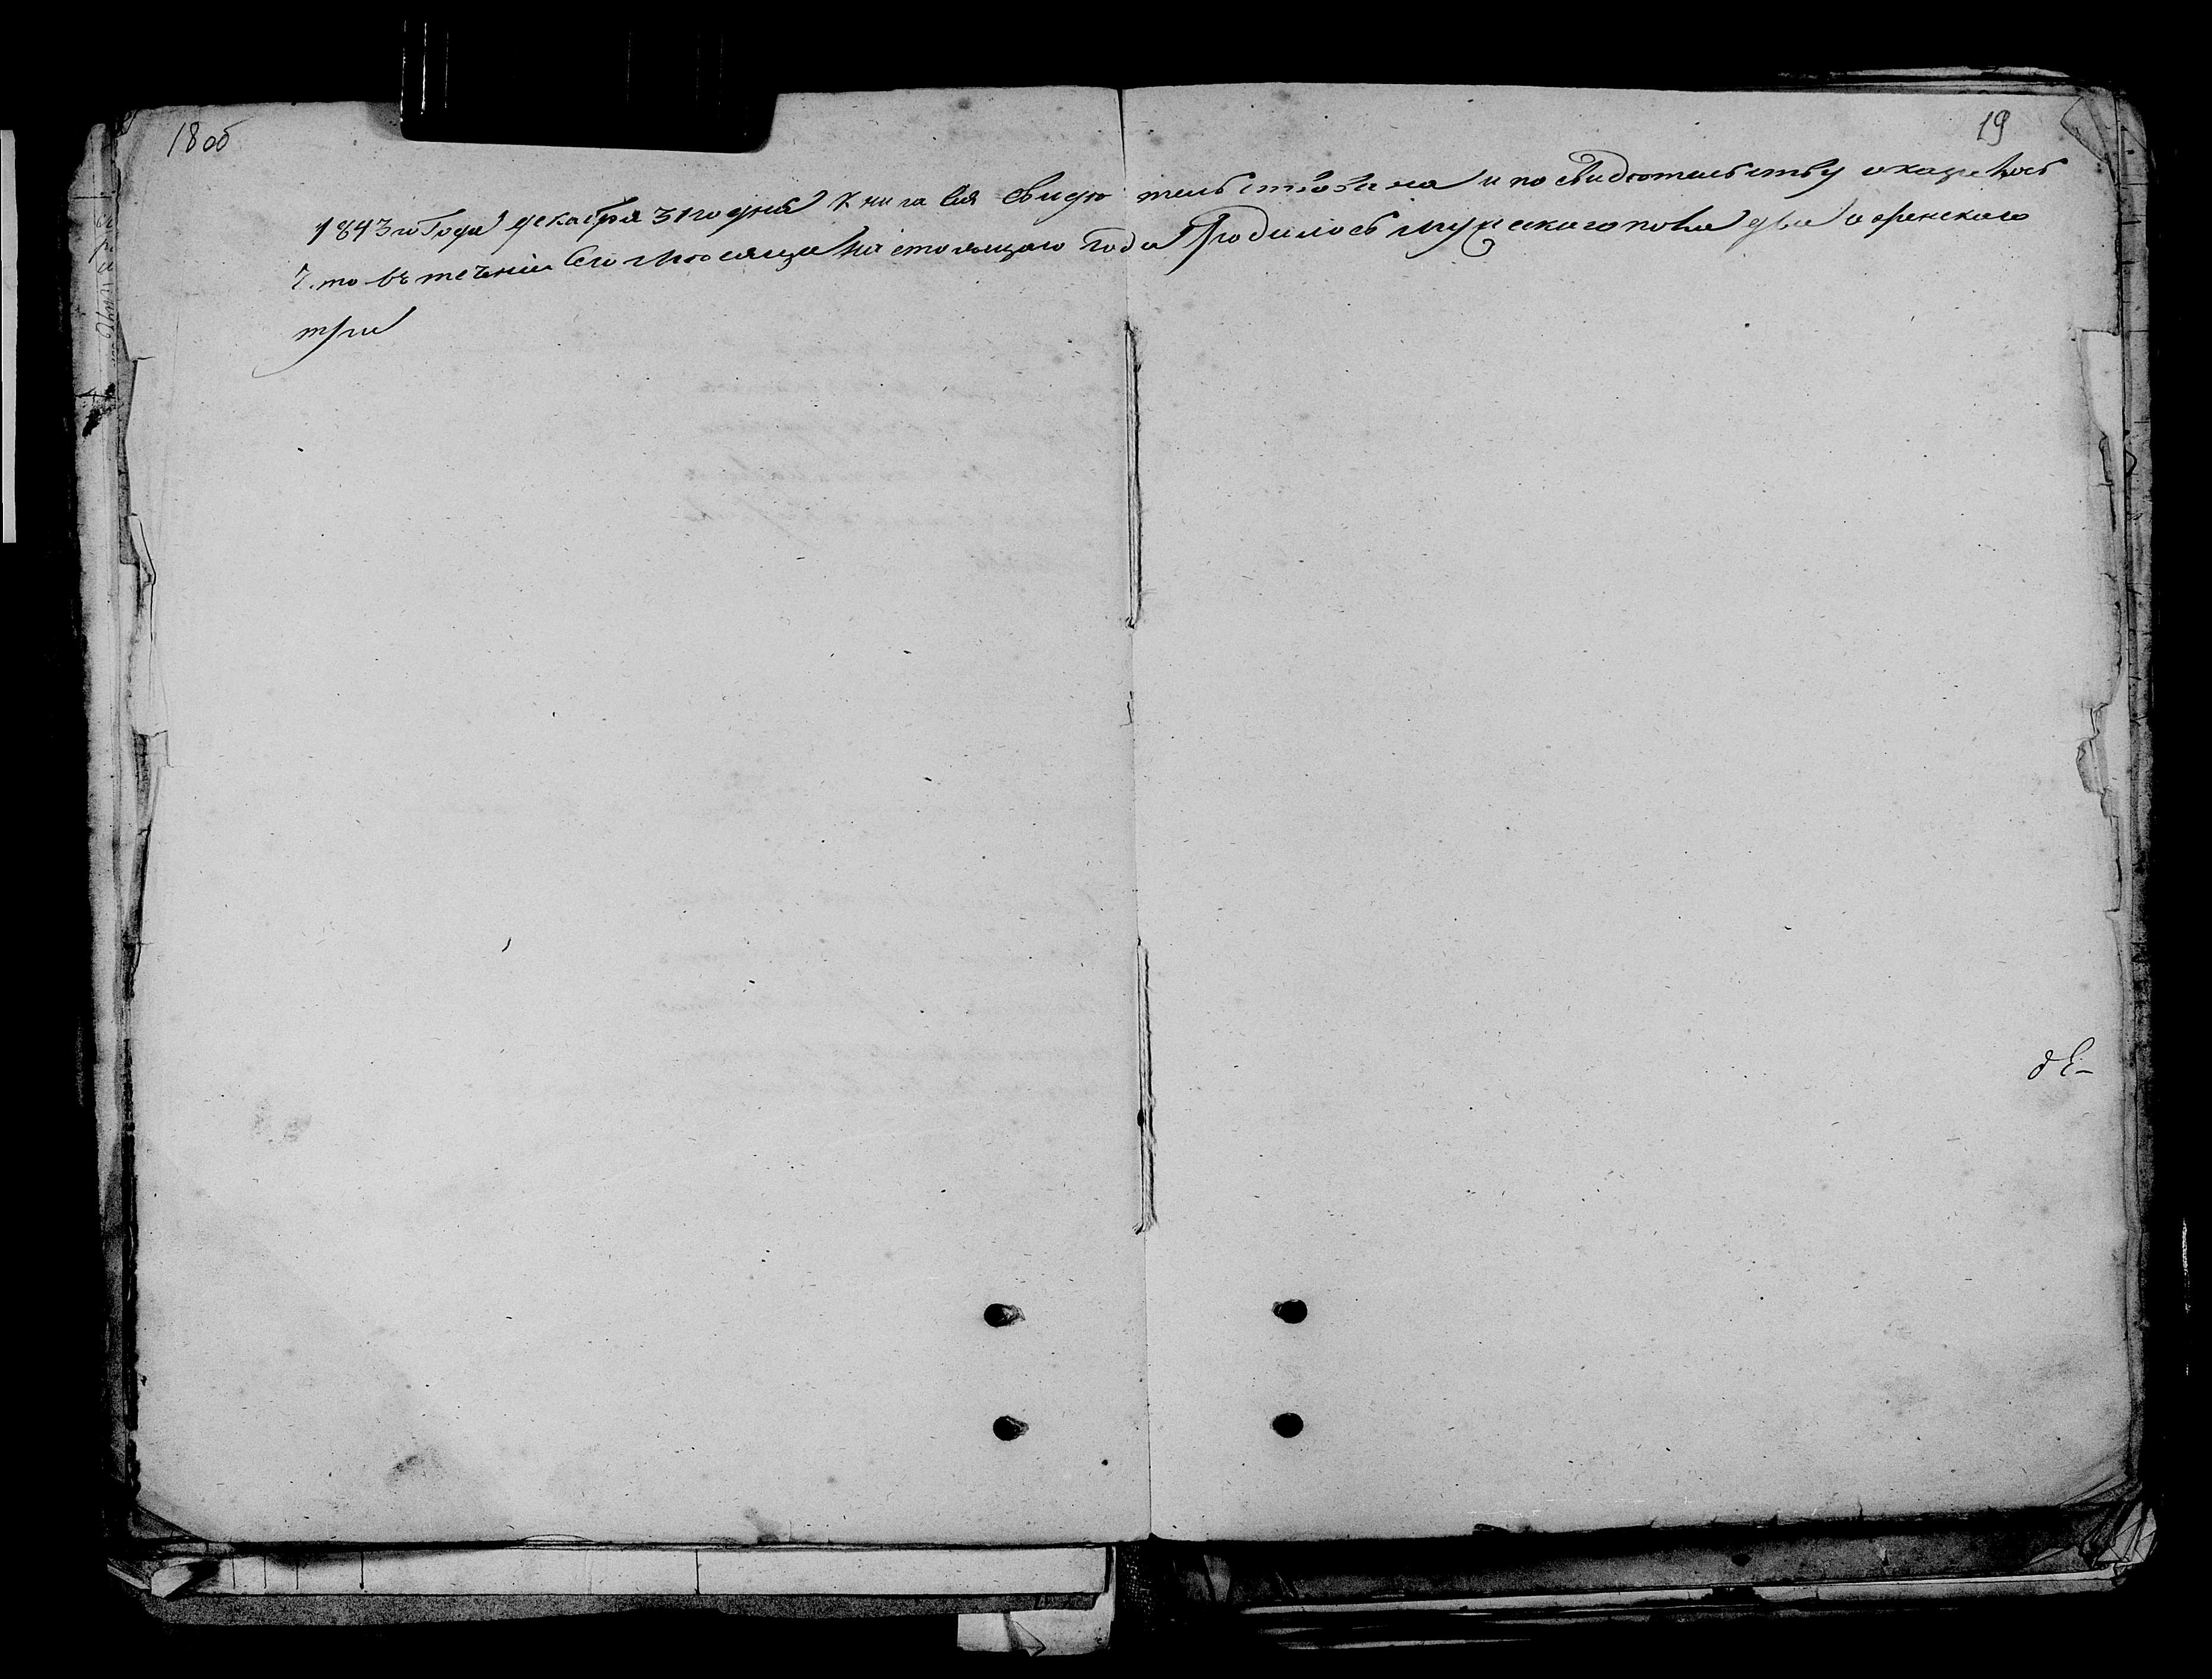 18 об
19
1843го Года декабря 31го дня Книга Сия свидетельствована и по свидетельству оказалось
Что въ течении Сего месяца настоящаго Года Родилось мужескаго пола два а женскаго
три